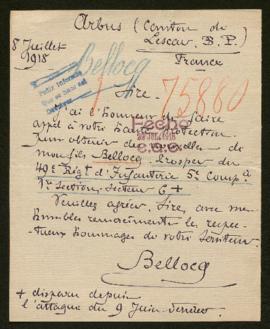 Arbus (Canton de
Lescar B. P.)
8 Juillet
1918
France
Bellocq
75860
Sire,
J'ai l'honneur de faire
appel à votre haute protection
pour obtenir des nouvelles de
mon fils Bellocq, Prosper du
49e Régt d'Infanterie 5e Compie
1re Section, Secteur 6 +
Veuillez agréer, Sire, avec mes
humbles remerciements les respec-
tueux hommages de votre serviteur.
Bellocq
+ disparu depuis
l'attaque du 9 Juin dernier.
Fecha
JUL 1918